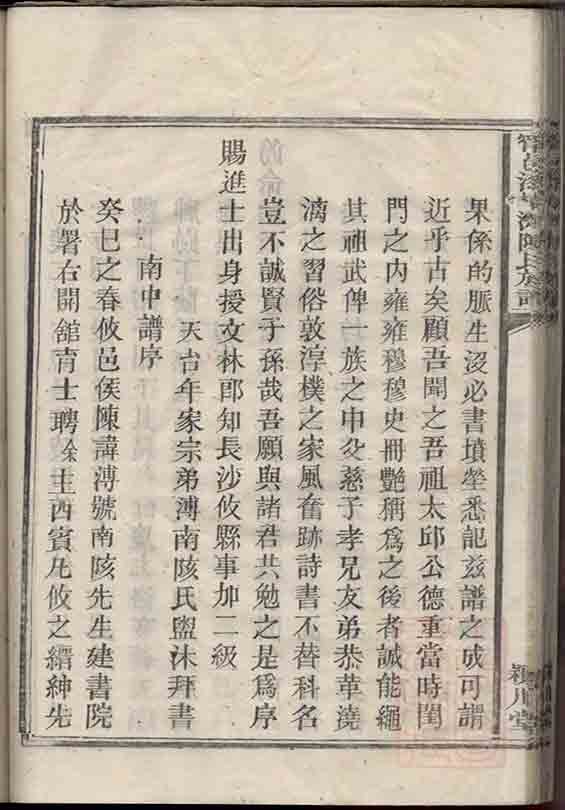 果係的脈生沒必書墳塋悉記茲譜之成可謂
近乎古矣顧吾聞之吾祖太邱公德重當時閨
門之內雍雍穆穆史冊艷稱爲之後者誠能繩
其祖武俾一族之中父慈子孝兄友弟恭革澆
漓之習俗敦淳樸之家風奮跡詩書不替科名
豈不誠賢子孫哉吾願與諸君共勉之是爲序
賜進士出身授文林郎知長沙攸縣事加二級
天台年家宗弟溥南陔氏盥沐拜書
南中譜序
癸巳之春攸邑侯陳諱溥號南陔先生建書院
於署右開舘育士聘余主西賓凡攸之縉紳先
潁川堂